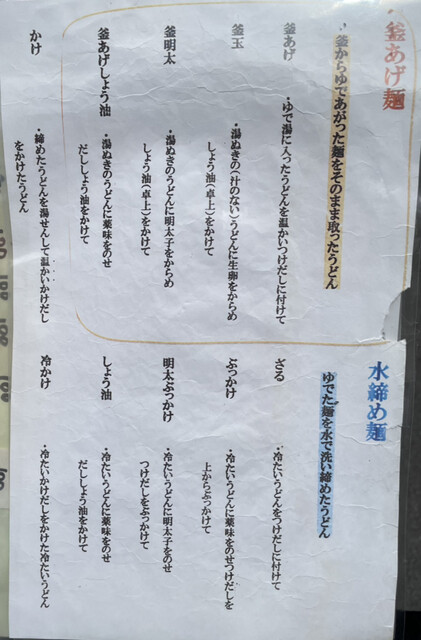 ・釜あげ麺
・釜からゆであがった麺をそのまま取ったうどん
釜あげ
・ゆで湯に入ったうどんを温かいつけだしに付けて
釜玉
・湯ぬきの(汁のない)うどんに生卵をからめ
しょう油(卓上)をかけて
釜明太
・湯ぬきのうどんに明太子をからめ
しょう油(卓上)をかけて
釜あげしょう油
・湯ぬきのうどんに薬味をのせ
だししょう油をかけて
かけ
・締めたうどんを湯せんして温かいかけだし
をかけたうどん
水締め麺
ゆでた麺を水で洗い締めたうどん
ざる
・冷たいうどんをつけだしに付けて
ぶっかけ
・冷たいうどんに薬味をのせつけだしを
上からぶっかけて
明太ぶっかけ
・冷たいうどんに明太子をのせ
つけだしをぶっかけて
しょう油
・冷たいうどんに薬味をのせ
だししょう油をかけて
冷かけ
・冷たいかけだしをかけた冷たいうどん